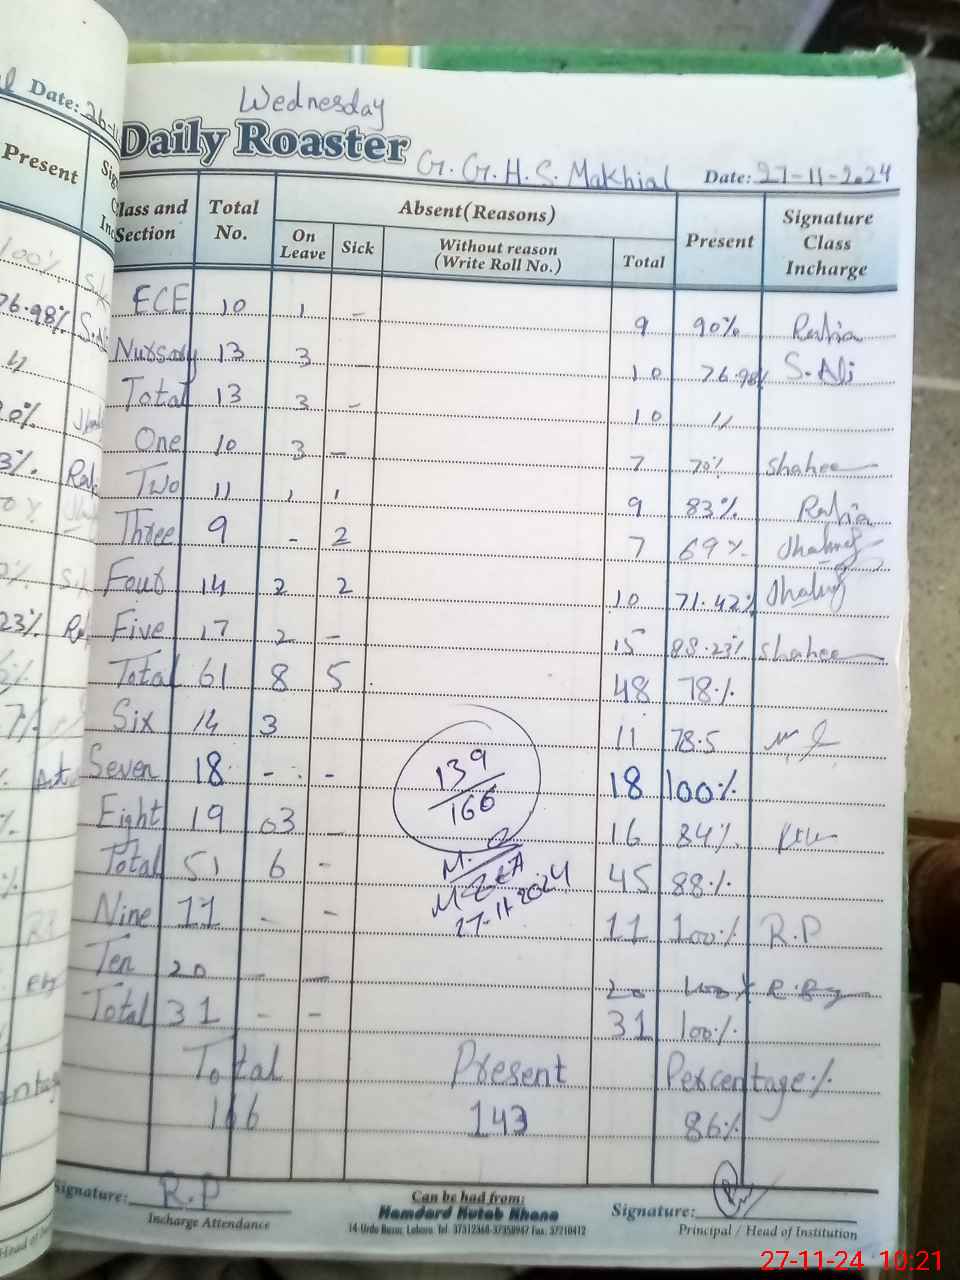 Wednesday
Daily Roaster G.G.H.S. Makhial Date: 27-11-2024
Class and Section Total No. Absent(Reasons) Present Signature Class Incharge
On Leave Sick Without reason (Write Roll No.) Total
ECE 10 1 - 9 90% Rabia
Nursary 13 3 - 10 76.98% S. Ali
Total 13 3 - 10 "
One 10 3 - 7 70% Shahee
Two 11 1 1 9 83% Rabia
Three 9 - 2 7 69%
Four 14 2 2 10 71.42%
Five 17 2 - 15 88.23% Shahee
Total 61 8 5 48 78%
Six 14 3 11 78.5
Seven 18 - - 18 100%
Eight 19 03 - 16 84%
Total 51 6 - 45 88%
Nine 11 - - 11 100% R.P
Ten 20 - - 20 100%
Total 31 - - 31 100%
139/166
27-11-2024
Total Present Percentage%
166 143 86%
Signature: R.P
Incharge Attendance
Can be had from:
Hamdard Kutab Khana
14-Urdu Bazar, Lahore. Tel: 37312368-37358947 Fax: 37210412
Signature:
Principal / Head of Institution
27-11-24 10:21
Date: 26-11
Present
100%
76.98% S. Ali
23%
Head of